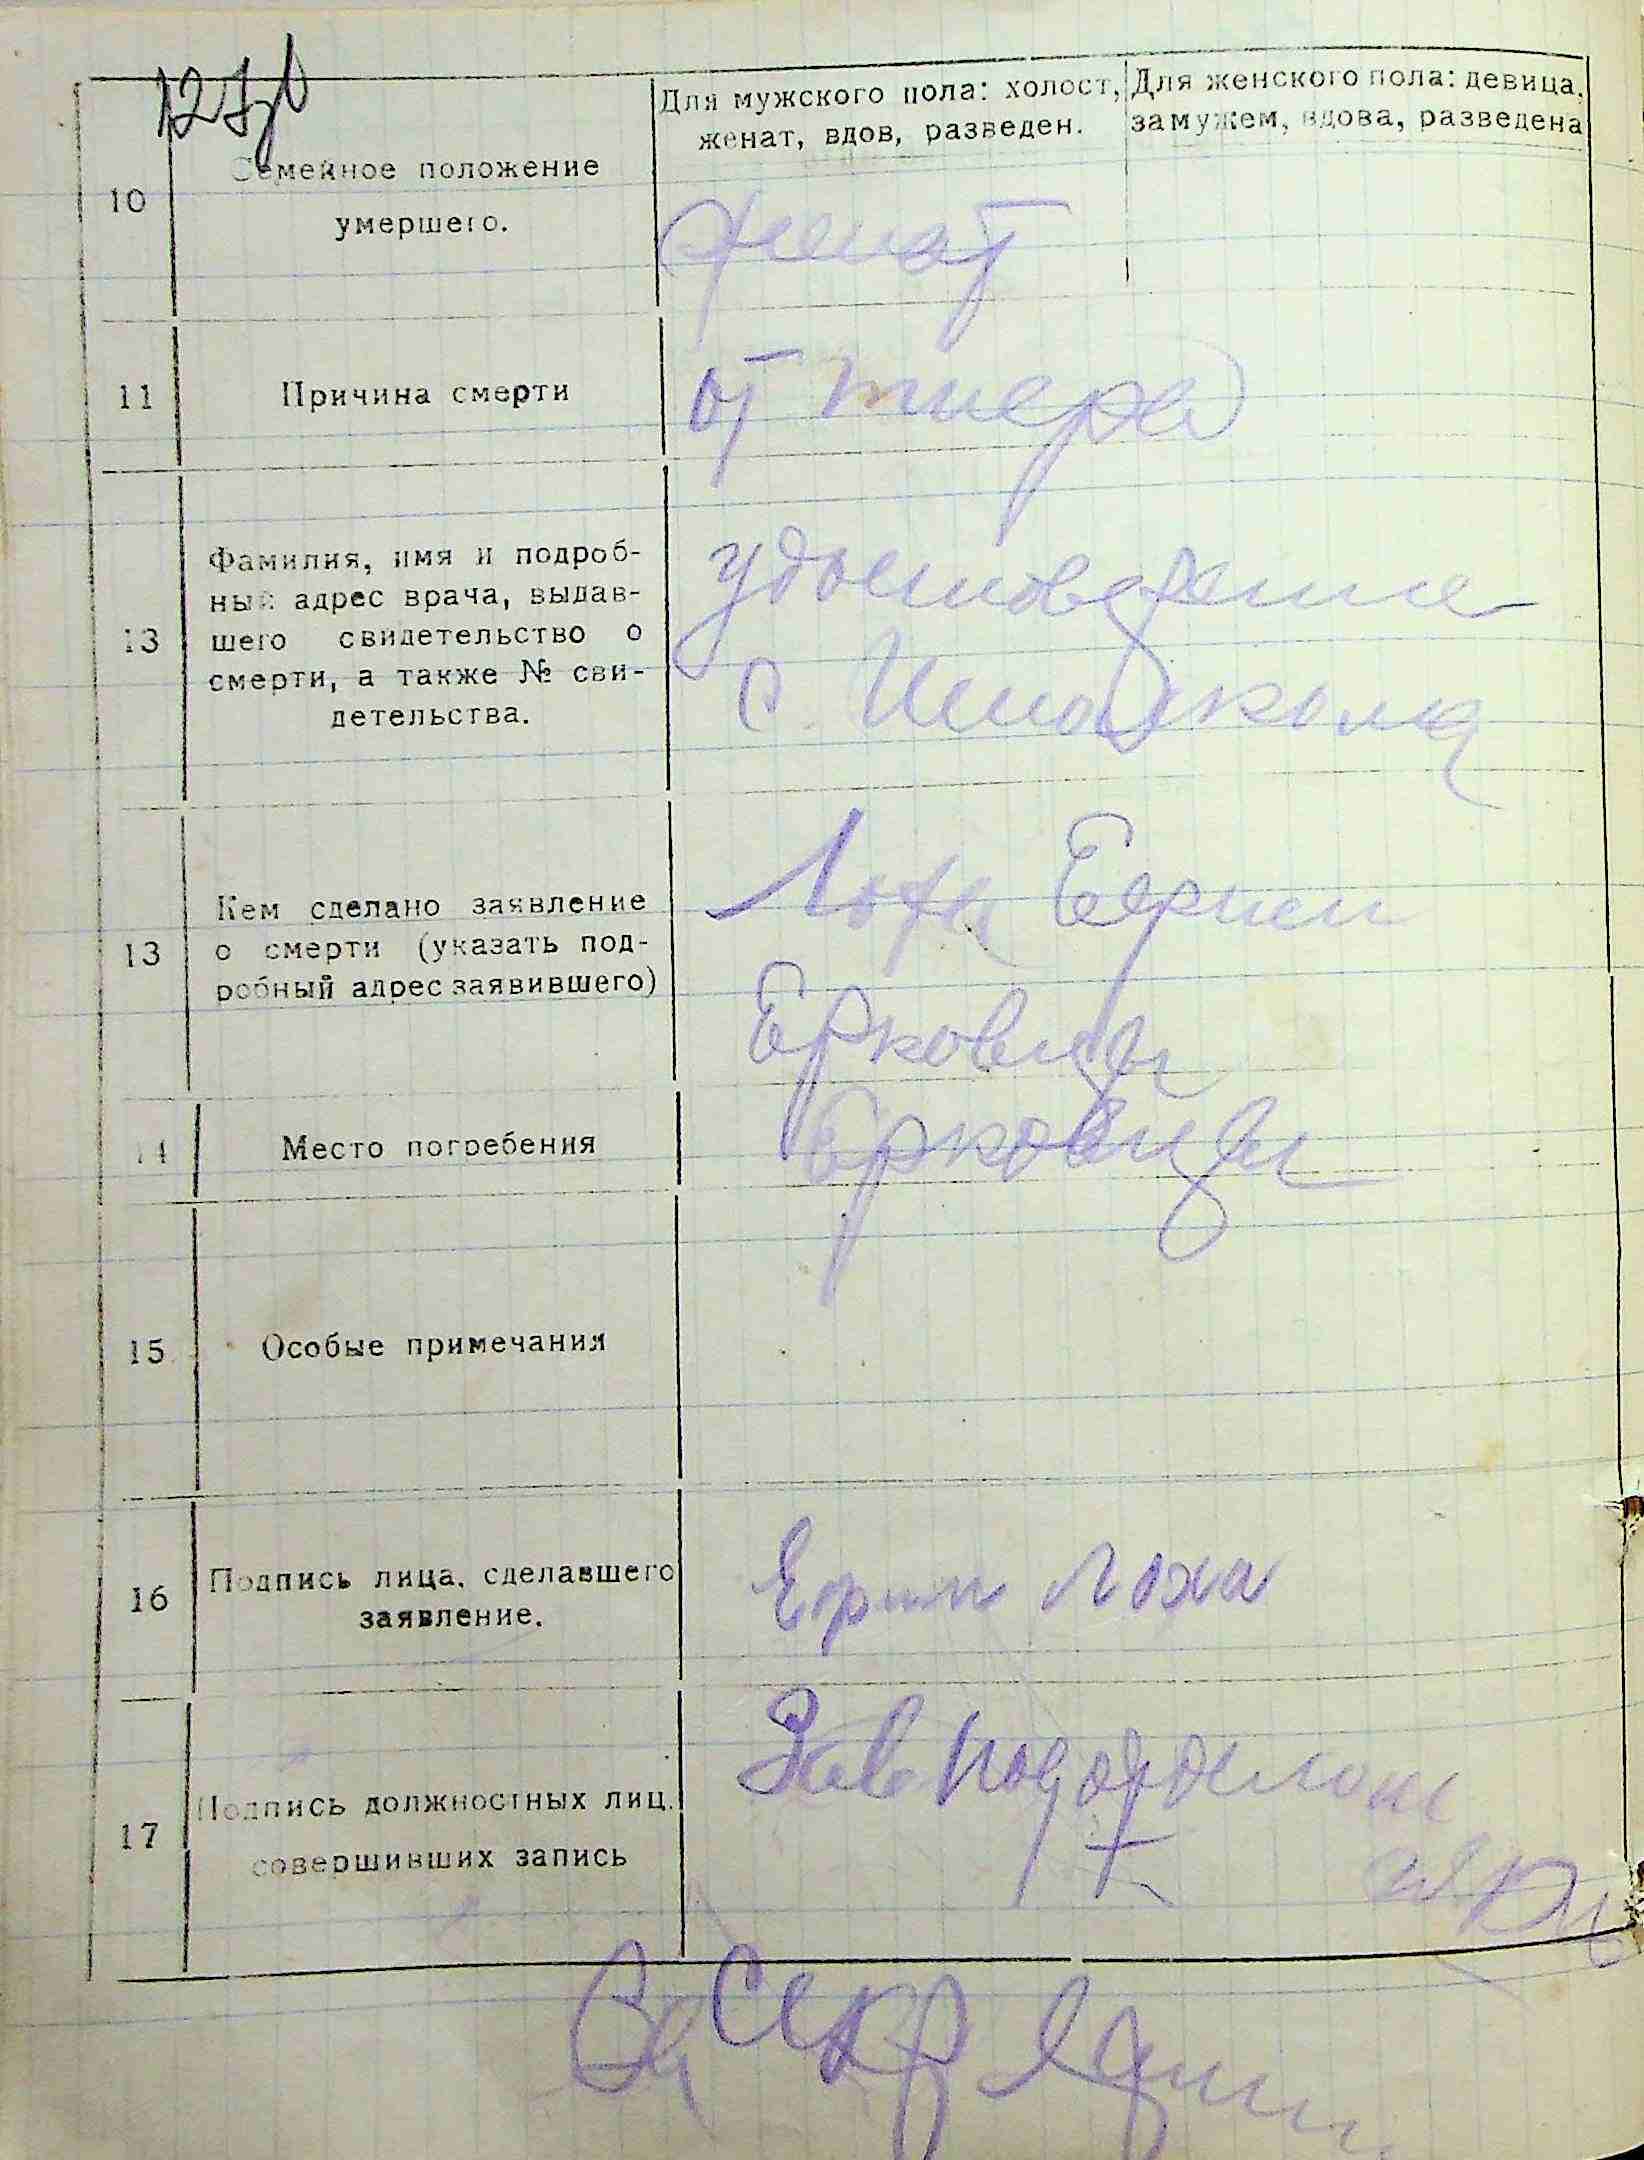 127об
10
Семейное положение
умершего.
Для мужского пола: холост,
женат, вдов, разведен.
Для женского пола: девица,
замужем, вдова, разведена
женат
11
Причина смерти
от тиера
13
Фамилия, имя и подроб-
ный адрес врача, выдав-
шего свидетельство о
смерти, а также № сви-
детельства.
удостоверение
с. Исполкома
13
Кем сделано заявление
о смерти (указать под-
робный адрес заявившего)
Лоха
Ерковцы
14
Место погребения
Ерковцы
15
Особые примечания
16
Подпись лица, сделавшего
заявление.
Лоха
17
Подпись должностных лиц,
совершивших запись
Зав Подотделом
Секр